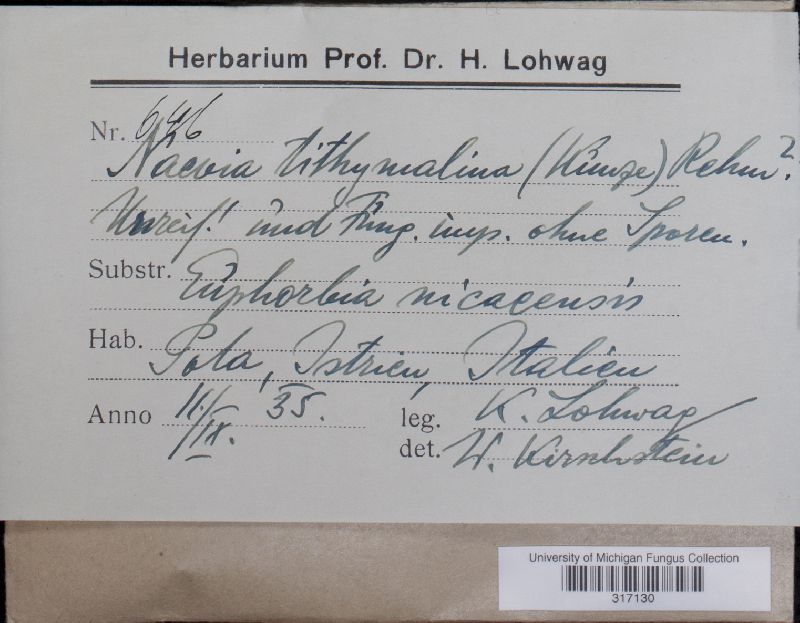 Herbarium Prof. Dr. H. Lohwag
Nr. 646
Naevia tithymalina (Kunze) Rehm?
Unreif! und Fung. imp. ohne Sporen.
Substr. Euphorbia nicaeensis
Hab. Pola, Istrien, Italien
Anno 11./IX. 35. leg. K. Lohwag
det. W. Kirschstein
University of Michigan Fungus Collection
317130